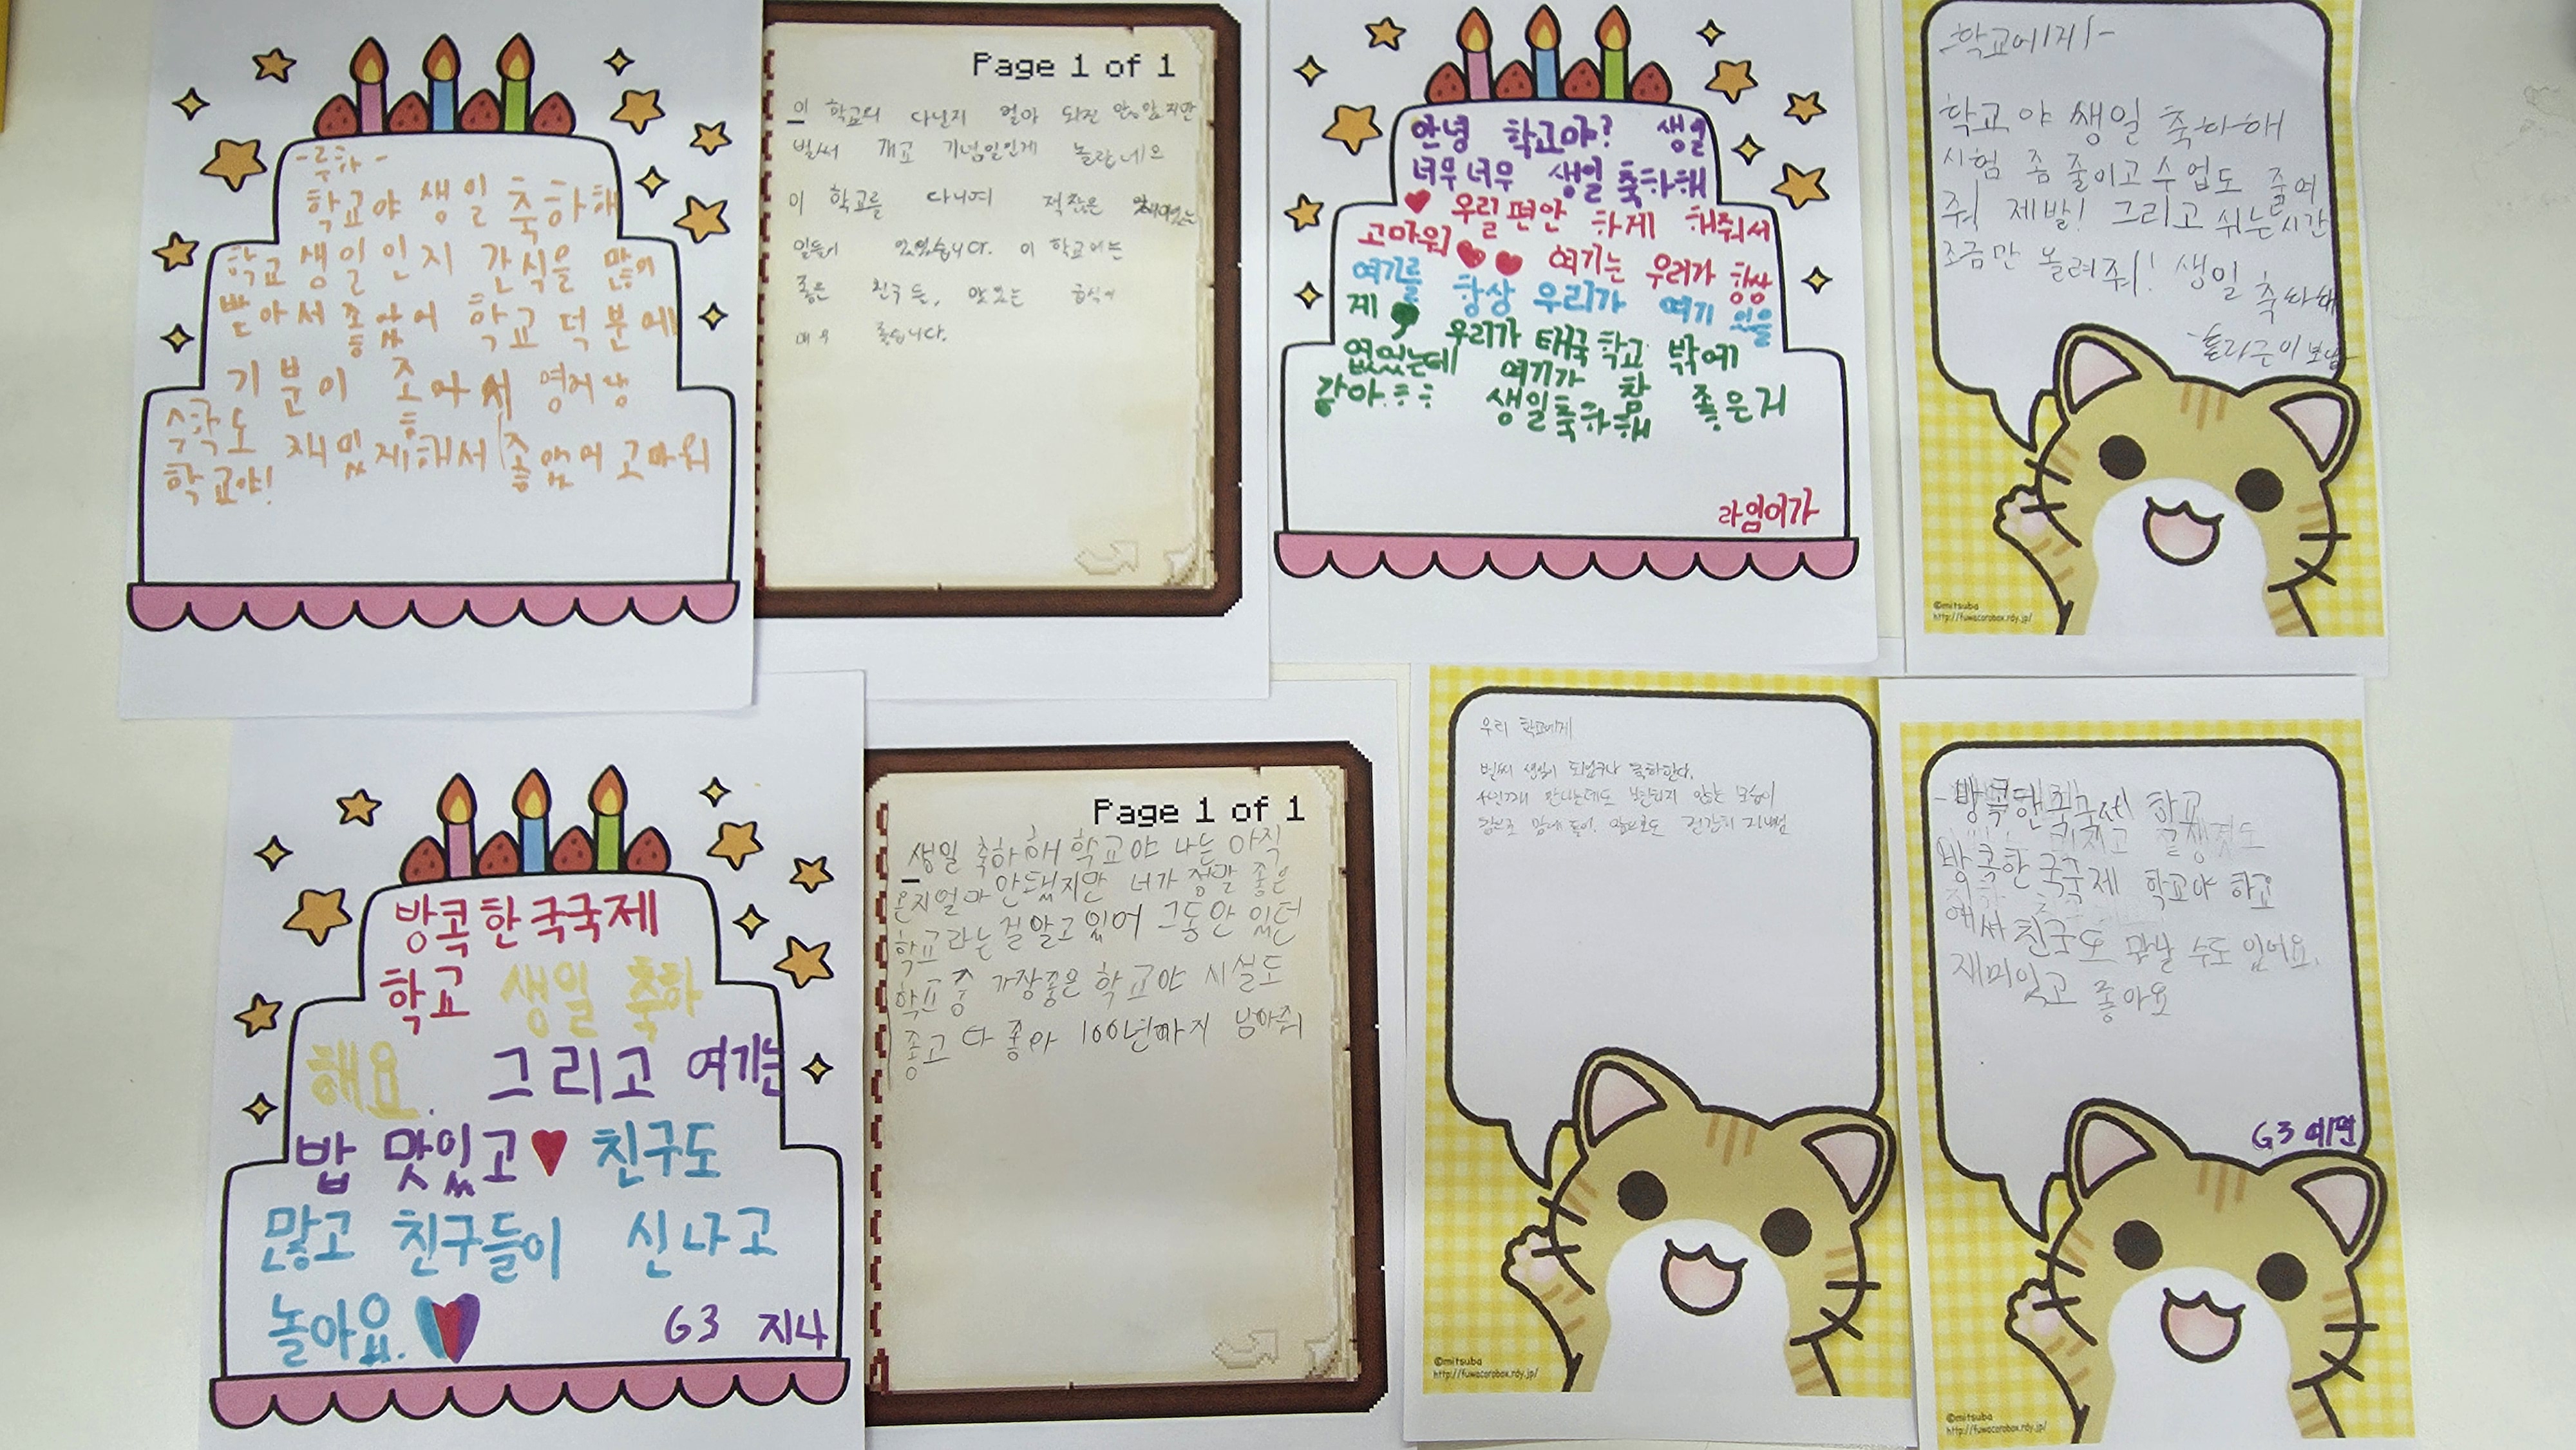 -루하-
학교야 생일 축하해
학교 생일인지 간식을 많이
받아서 좋았어 학교 덕분에
기분이 좋아서 영어랑
수학도 재밌제해서 좋았어 고마워
학교야!
Page 1 of 1
이 학교의 다닌지 얼마 되진 안았지만
벌써 개교 기념일인게 놀랍네요
이 학교를 다니며 적잖은
일들이 있었습니다. 이 학교에는
좋은 친구들, 맛있는 급식이
매우 좋습니다.
안녕 학교야? 생일
너무너무 생일 축하해
우릴 편안 하게 해줘서
고마워 여기는 우리가 항상
여기를 항상 우리가 여기 있을
게 우리가 태국 학교 밖에
없었는데 여기가 참 좋은거
같아.:: 생일축하해
라임이가
학교에게-
학교야 생일 축하해
시험 좀 줄이고 수업도 줄여
줘 제발! 그리고 쉬는시간
조금만 놀려줘! 생일 축하해
방콕한국국제
학교 생일 축하
해요. 그리고 여기는
밥 맛있고 친구도
많고 친구들이 신나고
놀아요.
G3 지나
Page 1 of 1
생일 축하해 학교야 나는 아직
온지얼마 안됐지만 너가 정말 좋은
학교라는 걸 알고있어 그동안 있던
학교중 가장좋은 학교야 시설도
좋고 다 좋아 100년까지 남아줘
우리 학교에게
벌써 생일이 되었구나 축하한다.
만나는데도 변하지 않는 모습이
맘에 들어. 앞으로도 건강히 지내렴
방콕한국국제 학교
방콕한국국제 학교야 학교
에서 친구도 만날 수도 있어요.
재미있고 좋아요
G3
©mitsuba
http://fuwacorobox.rdy.jp/
©mitsuba
http://fuwacorobox.rdy.jp/
©mitsuba
http://fuwacorobox.rdy.jp/